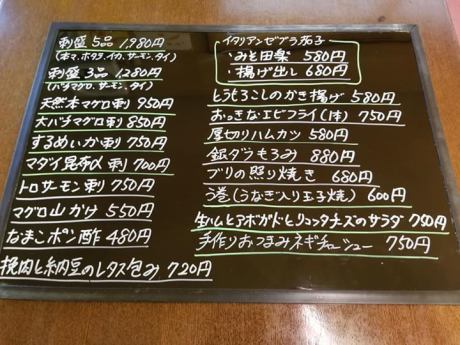 刺盛 5品 1,980円
(本マ、ホタテ、イカ、サーモン、タイ)
刺盛 3品 1,280円
(バチマグロ、サーモン、タイ)
天然本マグロ刺 950円
大バチマグロ刺 850円
するめいか刺 750円
マダイ昆布〆刺 700円
トロサーモン刺 750円
マグロ山かけ 550円
なまこポン酢 480円
挽肉と納豆のレタス包み 720円
イタリアンゼブラ茄子
・みそ田楽 580円
・揚げ出し 680円
とうもろこしのかき揚げ 580円
おっきなエビフライ(1本) 750円
厚切りハムカツ 580円
銀ダラもろみ 880円
ブリの照り焼き 680円
う巻(うなぎ入り玉子焼) 600円
生ハムとアボガドとリコッタチーズのサラダ 750円
手作りおつまみネギチャーシュー 750円